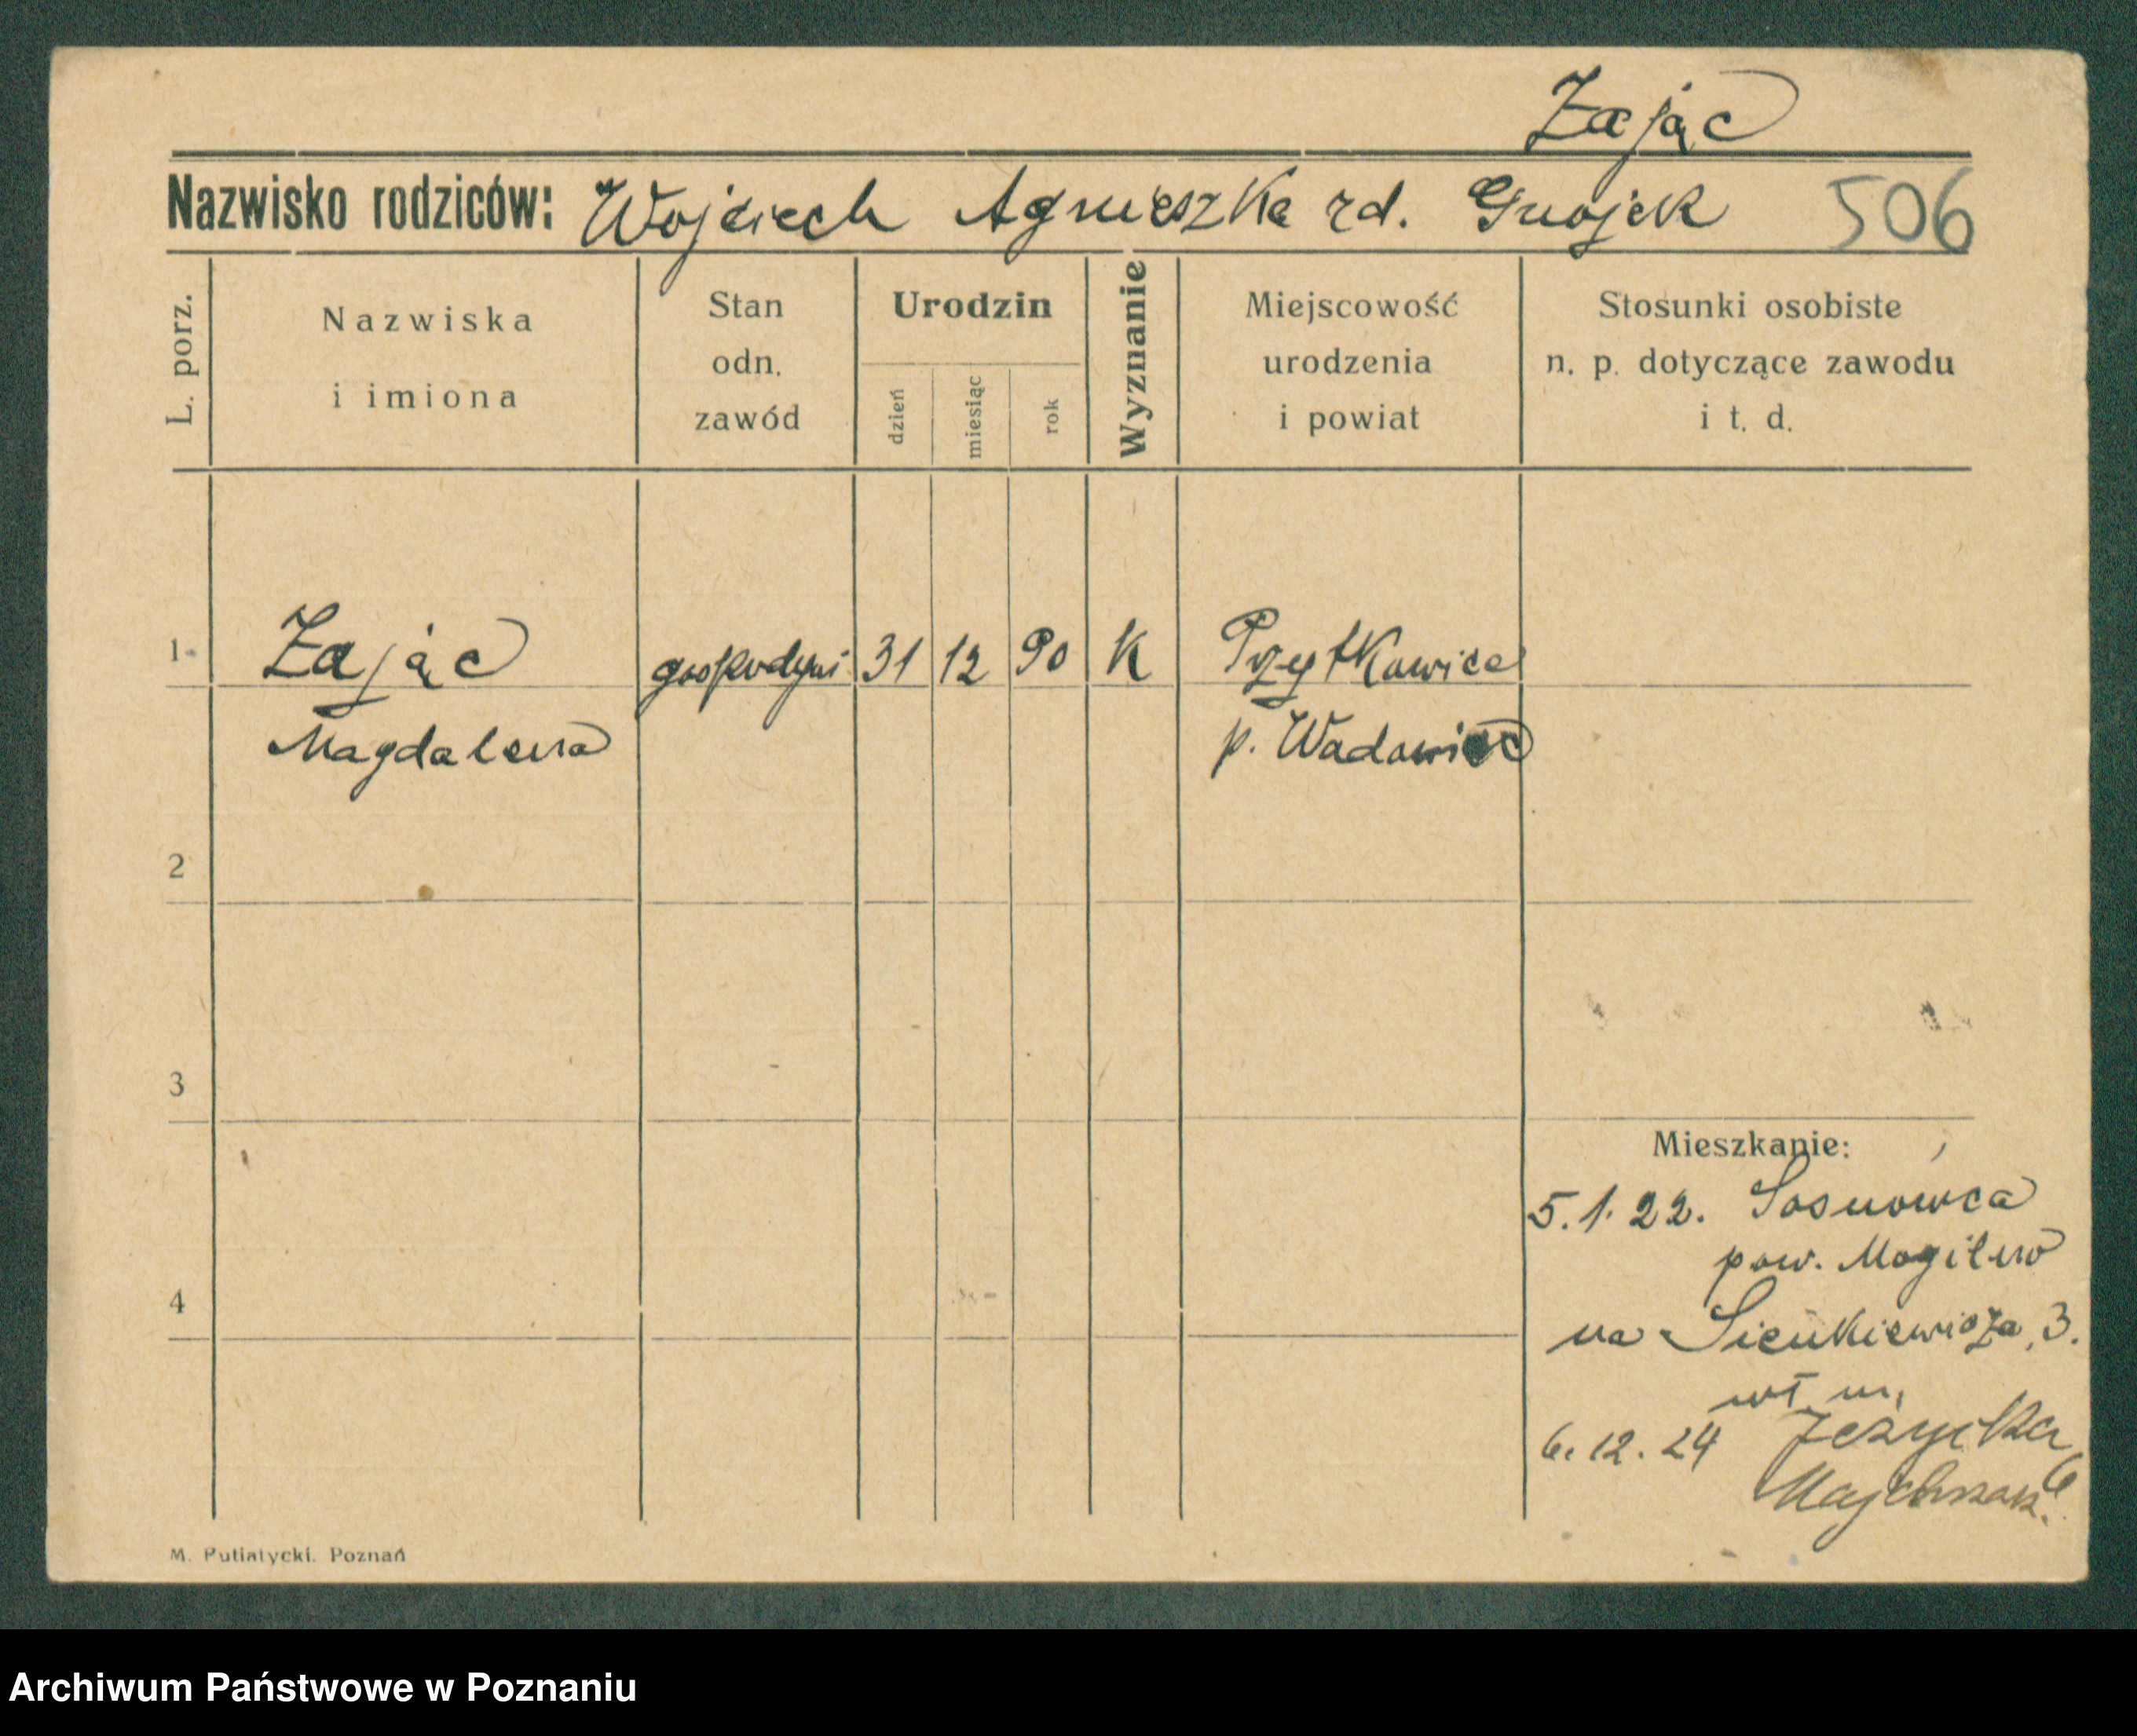 Zając
Nazwisko rodziców: Wojciech Agnieszka rd. Gnojek 506
L. porz.
Nazwiska i imiona
Stan odn. zawód
Urodzin
dzień
miesiąc
rok
Wyznanie
Miejscowość urodzenia i powiat
Stosunki osobiste n. p. dotyczące zawodu i t. d.
1. Zając gospodyni 31 12 90 K Przytkowice
Magdalena p. Wadowice
2
3
Mieszkanie:
5. 1. 22. Sosnowca
pow. Mogilno
4
na Sienkiewicza, 3.
m.
6. 12. 24
M. Putiatycki. Poznań
Archiwum Państwowe w Poznaniu